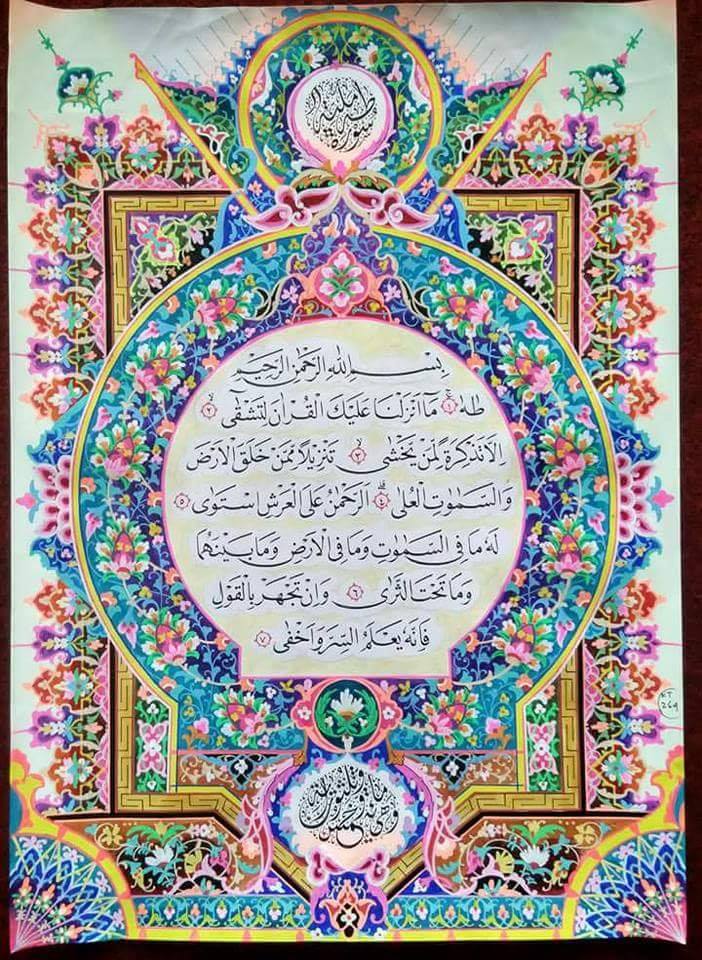 سورة طه مكية
بِسْمِ اللهِ الرَّحْمٰنِ الرَّحِيْمِ
طٰهٰ ۝١ مَآ اَنْزَلْنَا عَلَيْكَ الْقُرْاٰنَ لِتَشْقٰى ۝٢
اِلَّا تَذْكِرَةً لِّمَنْ يَّخْشٰى ۝٣ تَنْزِيْلًا مِّمَّنْ خَلَقَ الْاَرْضَ
وَالسَّمٰوٰتِ الْعُلٰى ۝٤ اَلرَّحْمٰنُ عَلَى الْعَرْشِ اسْتَوٰى ۝٥
لَهٗ مَا فِى السَّمٰوٰتِ وَمَا فِى الْاَرْضِ وَمَا بَيْنَهُمَا
وَمَا تَحْتَ الثَّرٰى ۝٦ وَاِنْ تَجْهَرْ بِالْقَوْلِ
فَاِنَّهٗ يَعْلَمُ السِّرَّ وَاَخْفٰى ۝٧
KT
269
وهي مائة وخمس وثلثون اية